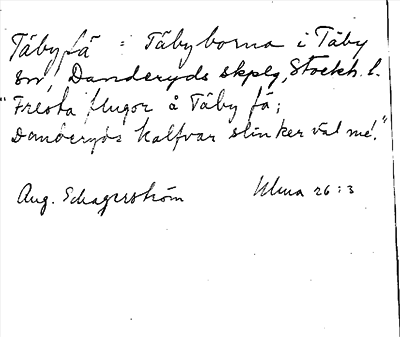 Täby fä : Täbyborna i Täby
sn, Danderyds skplg, Stockh. l.
"Fresta flugor å Täby fä;
Danderyds kalfvar slinker väl mé."
Aug. Schagerström Ulma 26:3